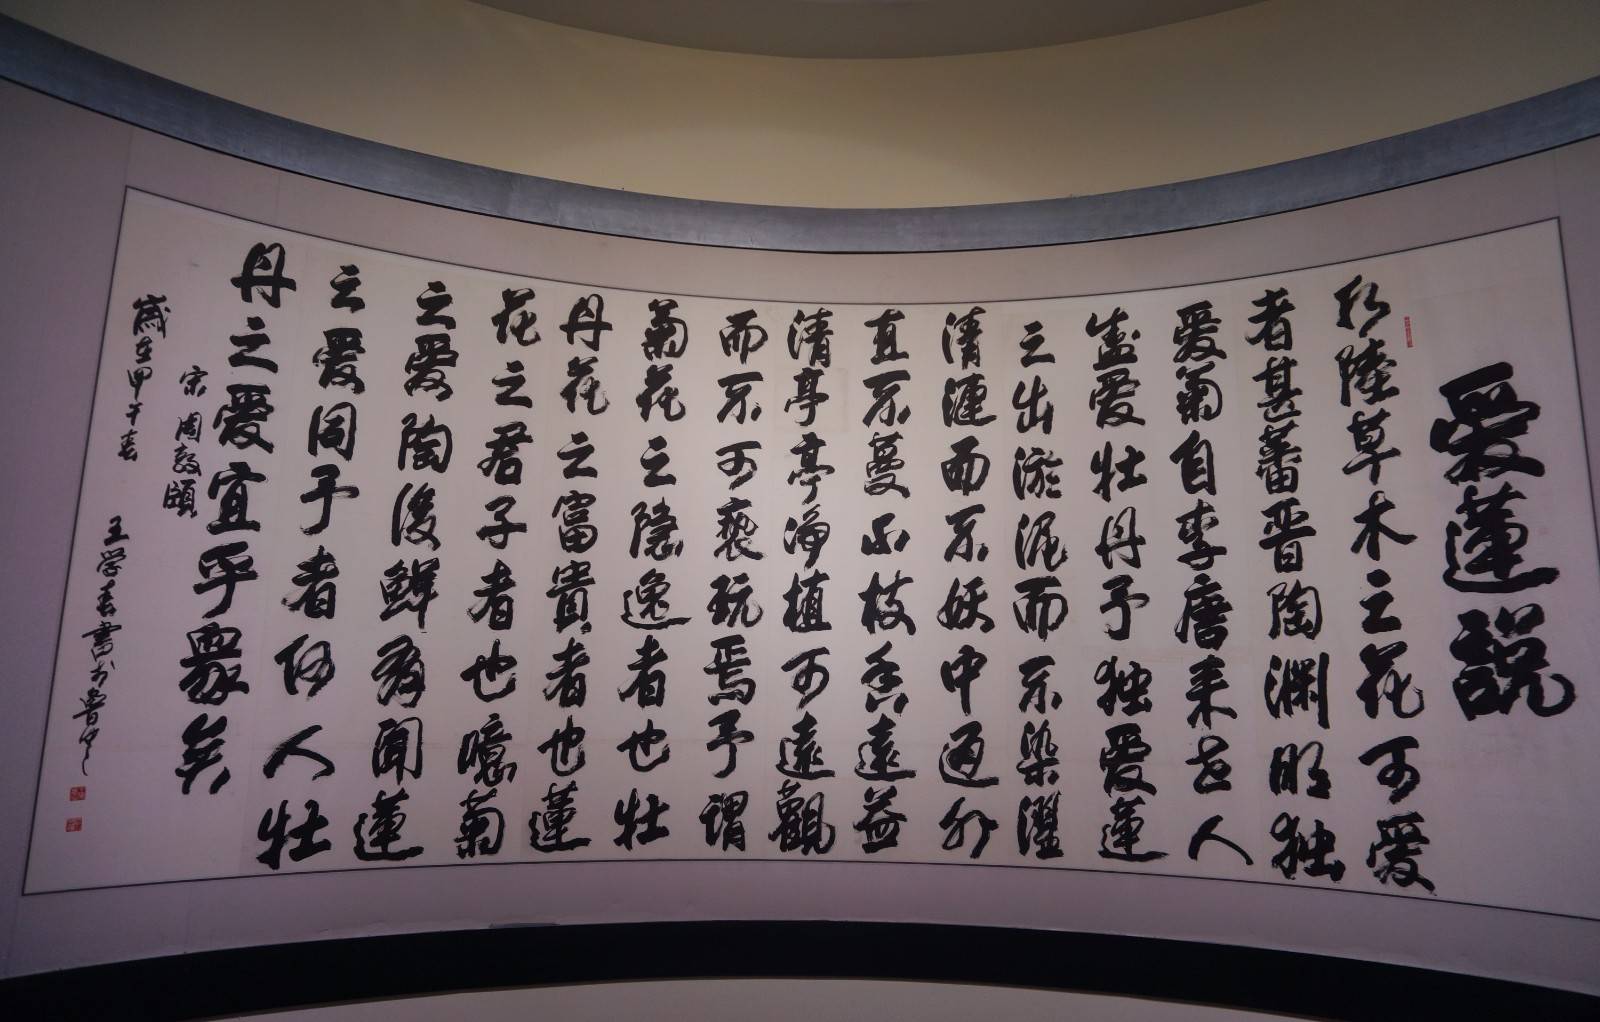 爱蓮説
水陸草木之花可爱
者甚蕃晋陶渊明独
爱菊自李唐来世人
盛爱牡丹予独爱蓮
之出淤泥而不染濯
清漣而不妖中通外
直不蔓不枝香遠益
清亭亭净植可遠觀
而不可亵玩焉予謂
菊花之隐逸者也牡
丹花之富貴者也蓮
花之君子者也噫菊
之爱陶後鮮有聞蓮
之爱同予者何人牡
丹之爱宜乎眾矣
宋周敦頤
歲在甲午春 王学春書於魯